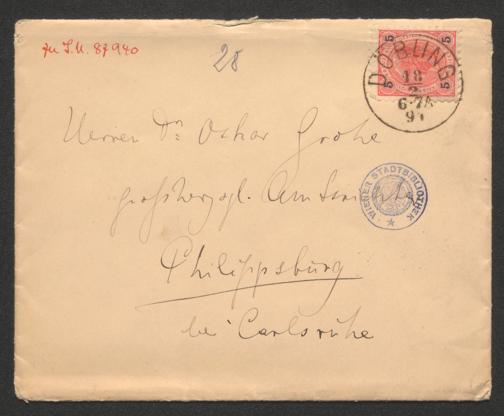 zu I.N. 87940
28
5 5
5 5
DÖBLING
18
2
6-7A
9
Herrn Dr Oskar Grohe
großherzogl. Amtsrichter
WIENER STADTBIBLIOTHEK
Philippsburg
bei Carlsruhe